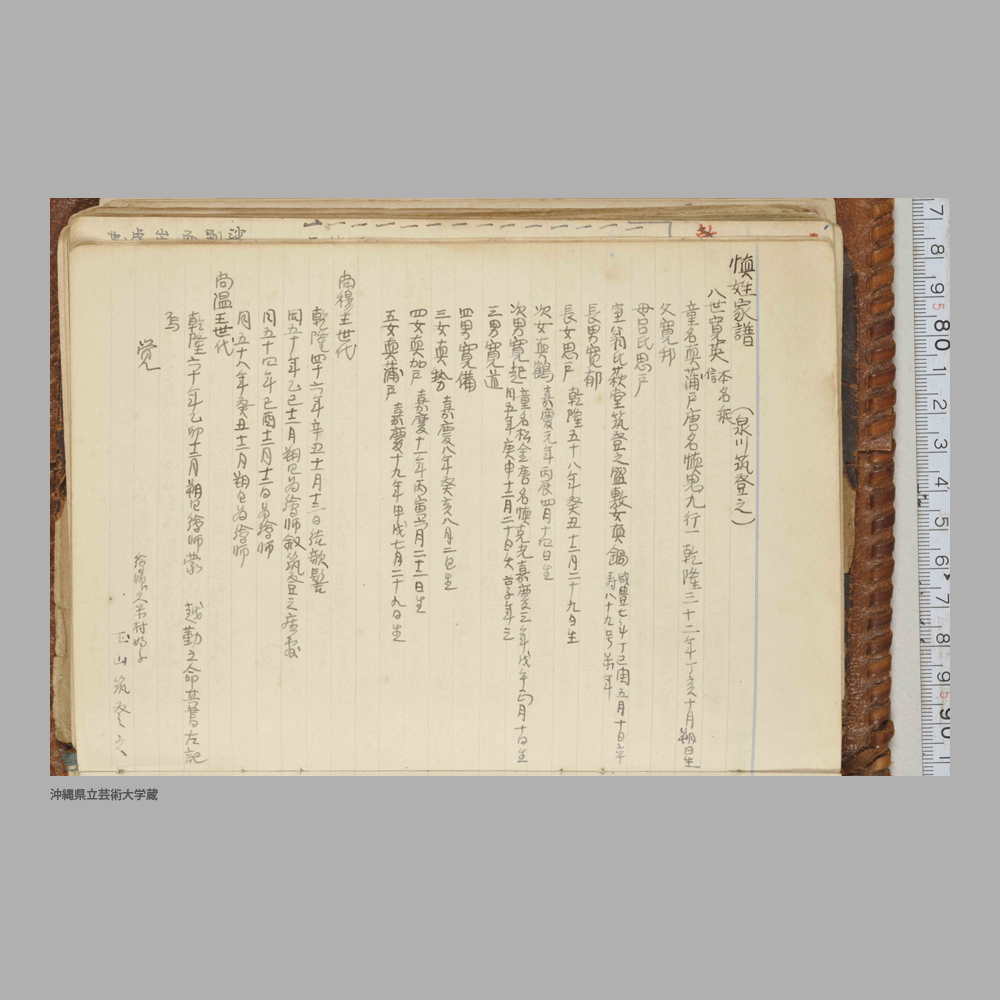 慎姓家譜 （泉川筑登之）
八世寛英 本名乗寛信
童名真蒲戸唐名慎思九行一 乾隆三十二年丁亥十月朔日生
父寛邦
母呂氏思戸
室翁氏萩堂筑登之盛敷女真鍋 咸豊七年丁巳閏五月十日卒
寿八十九号
長男寛郁
長女思戸 乾隆五十八年癸丑十二月二十九日生
次女真鶴 嘉慶元年丙辰四月十七日生
次男寛起 童名松金唐名慎克光嘉慶三年戊午 月十日生
同五年庚申十二月二十日夭 年三
三男寛道
四男寛備
三女真勢 嘉慶八年癸亥八月二日生
四女真加戸 嘉慶十一年丙寅 月二十二日生
五女真蒲戸 嘉慶十九年甲戌七月二十九日生
尚穆王世代
乾隆四十六年辛丑十一月十三日結欹髻
同五十年乙巳十二月朔日為絵師叙筑登之座敷
同五十四年己酉十二月十二日為絵師
同五十八年癸丑十二月朔日為絵師
尚温王世代
乾隆六十年乙卯十二月朔日絵師蒙 越勤之命其旨左記
焉
覚
絵師久米村
山筑登之
沖縄県立芸術大学蔵